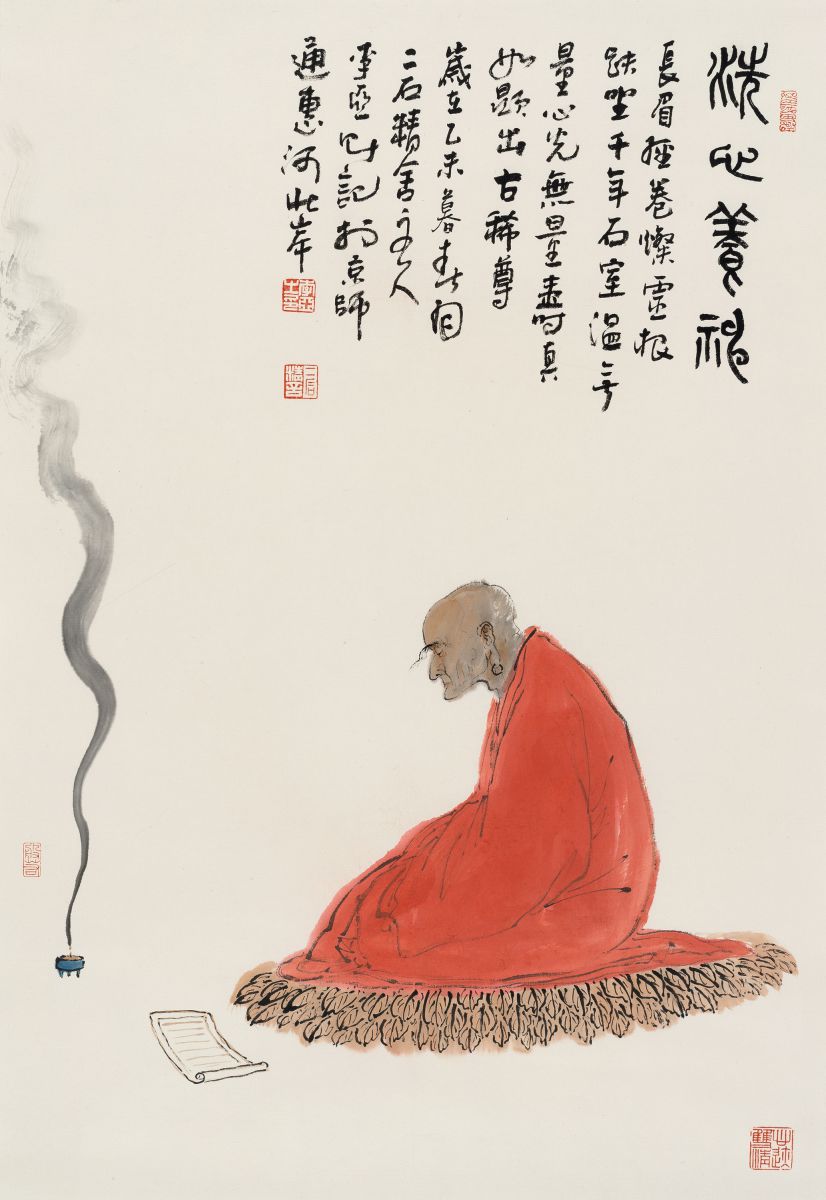 洗心養神
長眉經卷燦靈根
趺坐千年石室溫無
量心光無量壽真
如顯出古稀尊
歲在乙未暮春
二石精舍主人
記於京師
通惠河北岸
二石精舍